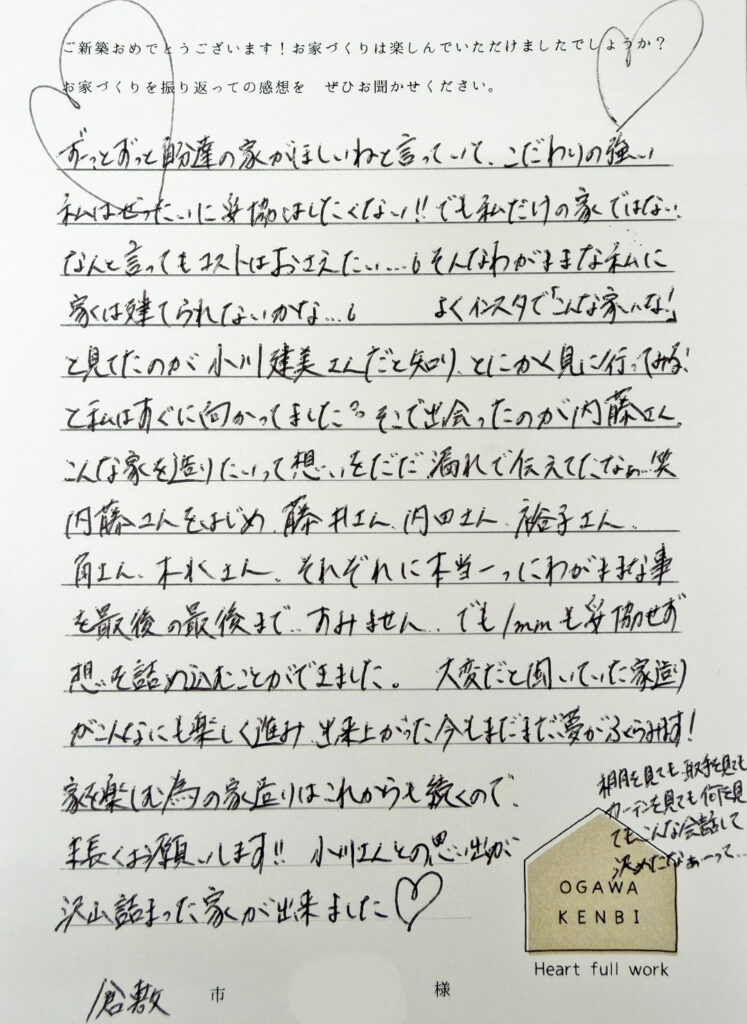 ご新築おめでとうございます！お家づくりは楽しんでいただけましたでしょうか？
お家づくりを振り返っての感想を　ぜひお聞かせください。
ずーっとずっと自分達の家がほしいねと言っていて、こだわりの強い
私はぜったいに妥協はしたくない!!でも私だけの家ではない
なんと言ってもコストはおさえたい…。そんなわがままな私に
家は建てられないかな…。　よくインスタで「こんな家いいな!」
と見てたのが小川建美さんだと知り、とにかく見に行ってみる!
と私はすぐに向かってました?。そこで出会ったのが内藤さん。
こんな家を造りたいって想いをだだ漏れで伝えてたなぁ…笑
内藤さんをはじめ、藤井さん、内田さん、裕子さん、
角さん、木水さん、それぞれに本当一つにわがままな事
を最後の最後まで…すみません…でも1mmも妥協せず
想いを詰め込むことができました。　大変だと聞いていた家造り
がこんなにも楽しく進み、出来上がった今もまだまだ夢がふくらみます!
家を楽しむ為の家造りはこれからも続くので、
末長くお願いします!!　小川さんとの思い出が
沢山詰まった家が出来ました♡
棚を見ても、取手を見ても
カーテンを見ても何を見
てもこんな会話して
決めたなぁーって…
OGAWA
KENBI
Heart full work
倉敷 市 様